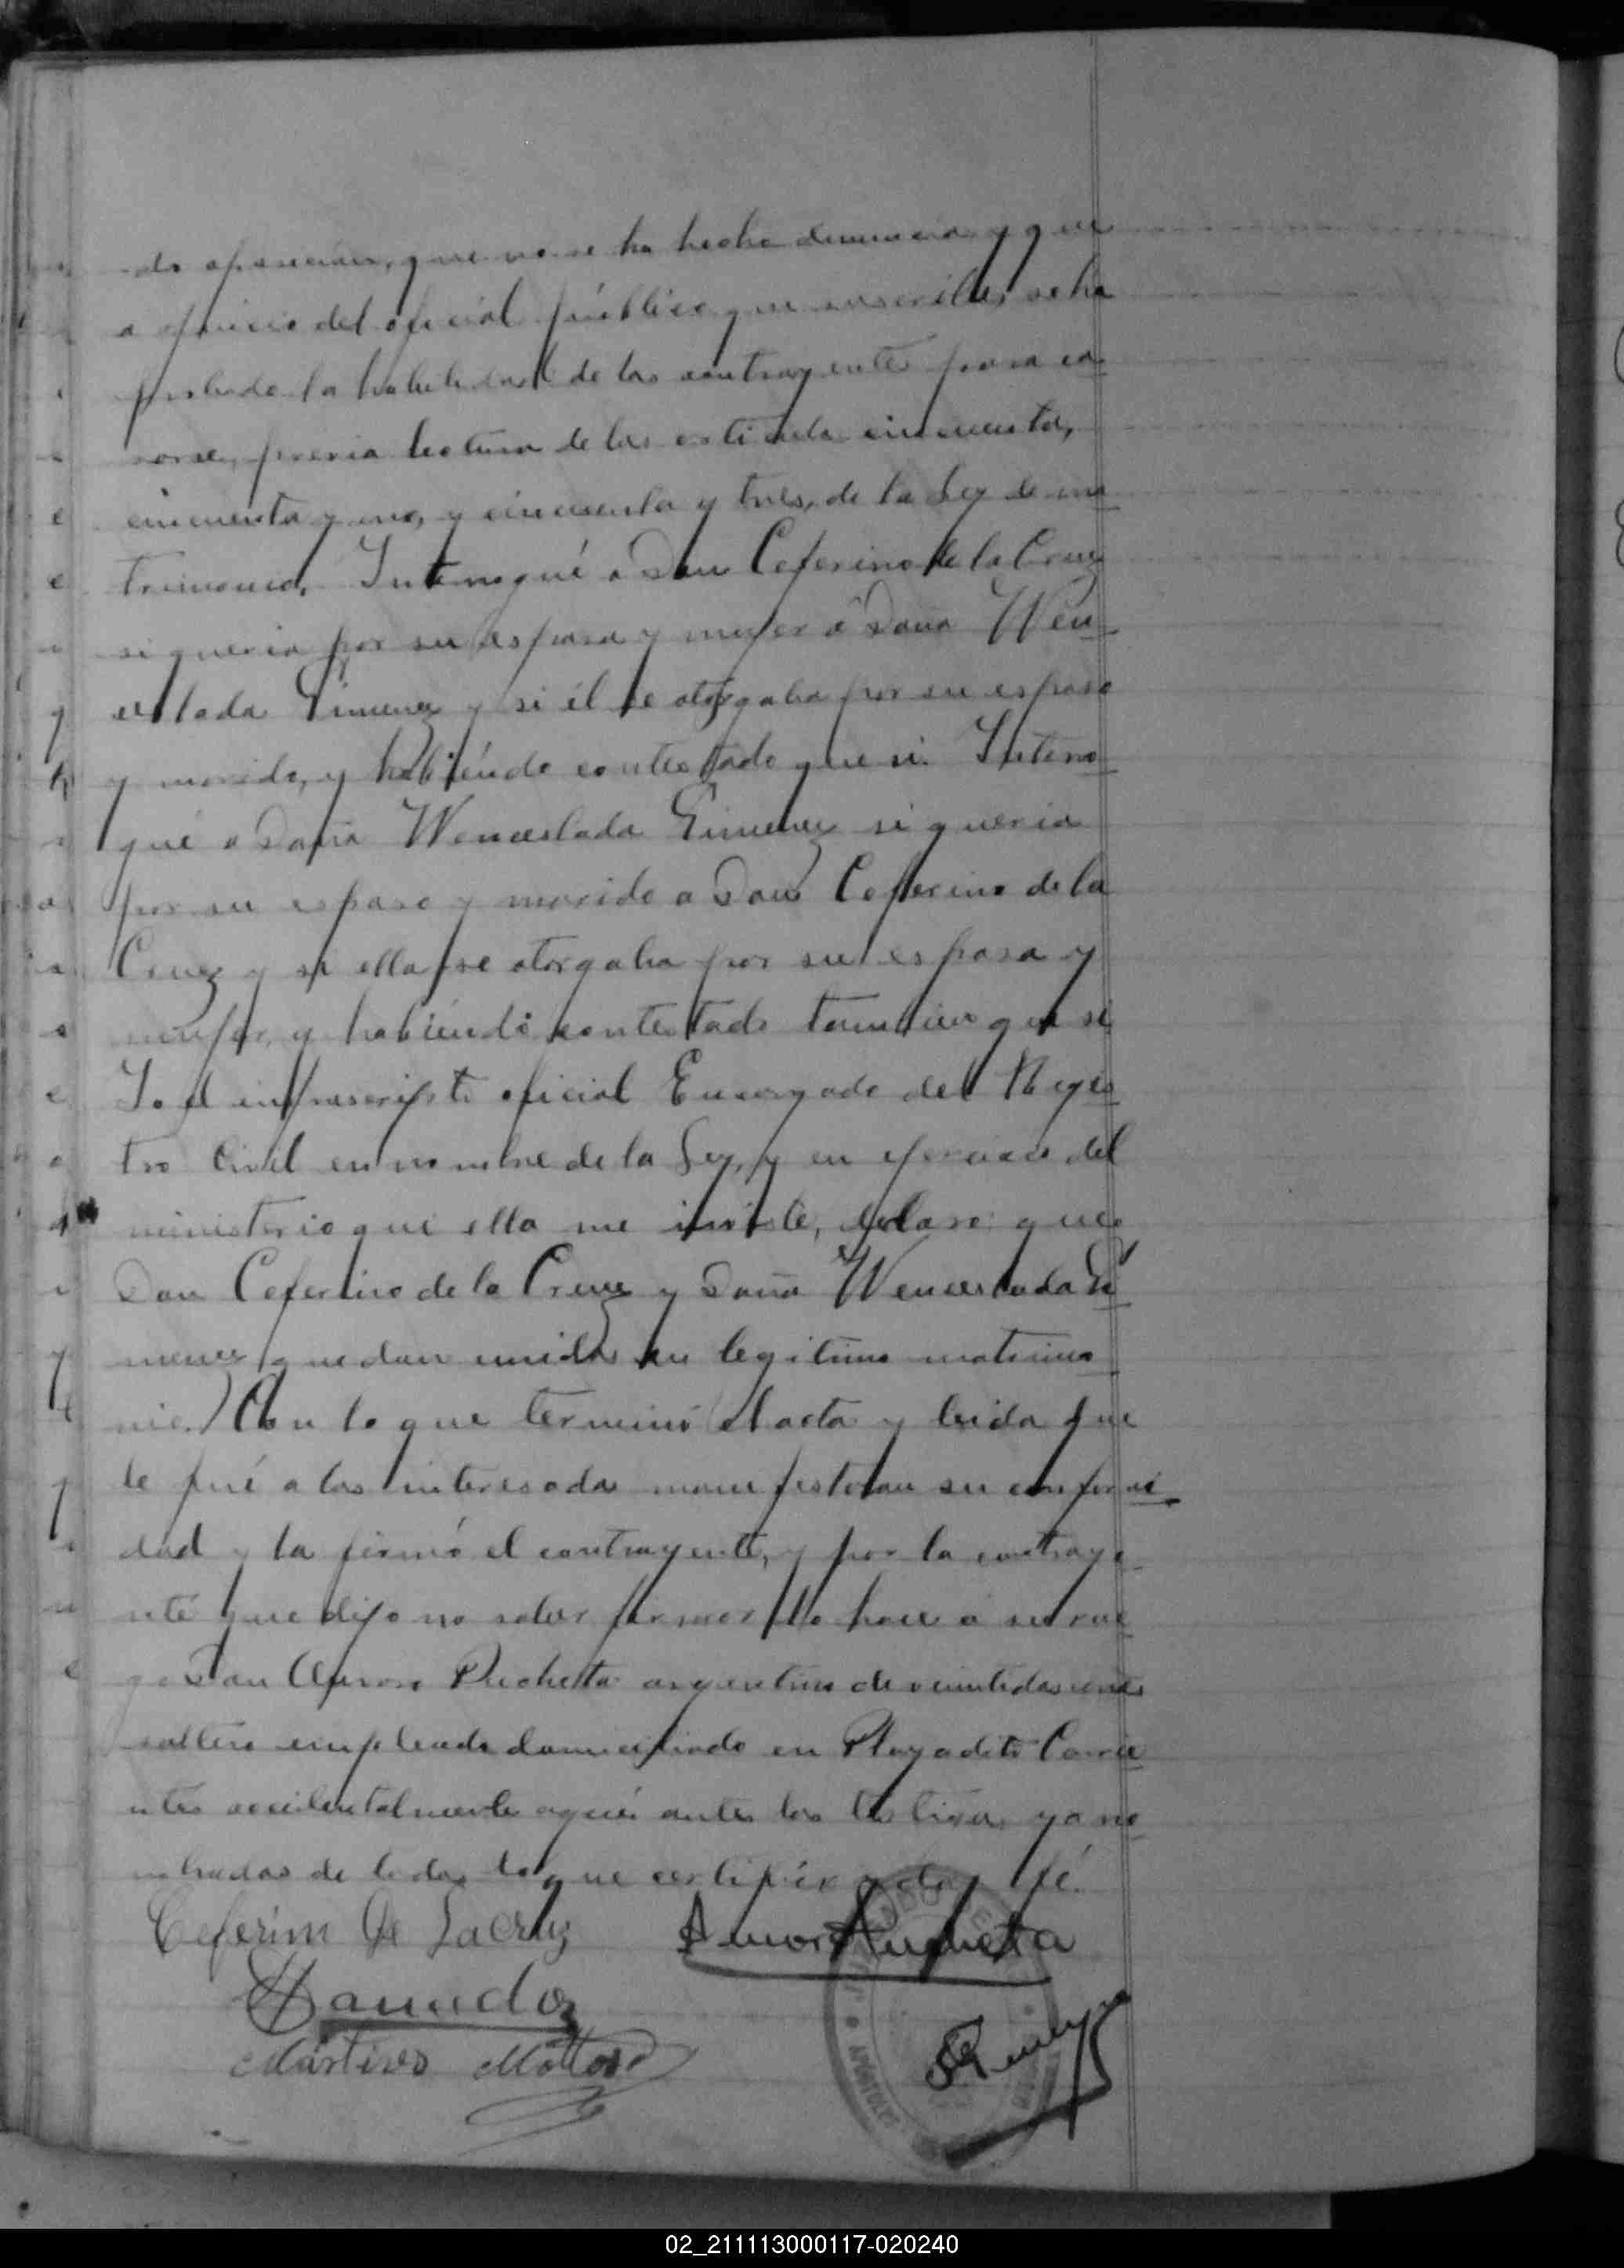 do oposicion, que no se ha hecho denuncia y que
a spuicio del oficial público que suscribe, se ha
probado la habilidad de los contrayentes para ca
sarse, previa lectura de los articulo cincuenta,
cincuenta y uno, y cincuenta y tres, de la Ley de ma
trimonio, Interrogué a Don Ceferino de la Cruz
si queria por su esposa y mujer á Doña Wen
ceslada Gimenez y si él se otorgaba por su esposo
y marido, y habiéndo contestado que si. Interro
gué a Doña Wenceslada Gimenez si queria
por su esposo y marido a Don Ceferino de la
Cruz y si ella se otorgaba por su esposa y
mujer, y habiéndo contestado tambien que si
Yo el infrascripto oficial Encargado del Regis
tro Civil en nombre de la Ley, y en ejercicio del
ministerio que ella me inviste, declaro: que
Don Ceferino de la Cruz y Doña Wenceslada Gi
menez quedan unidos en legitimo matrimo
nio. Con lo que terminó el acta y leida que
le fué a los interesados manifestaron su conformi
dad y la firmó el contrayente, y por la contraye
nte que dijo no saber firmar lo hace á su rue
go Don Amoro Puchetta argentino de veintidos años
soltero empleado domiciliado en Playadito Corrie
ntes accidentalmente aqui ante los testigos ya no
mbrados de todo lo que certifico y doy fé.
Ceferino De La Cruz Amoro Puchetta
Martires Mattoso
02_211113000117-020240